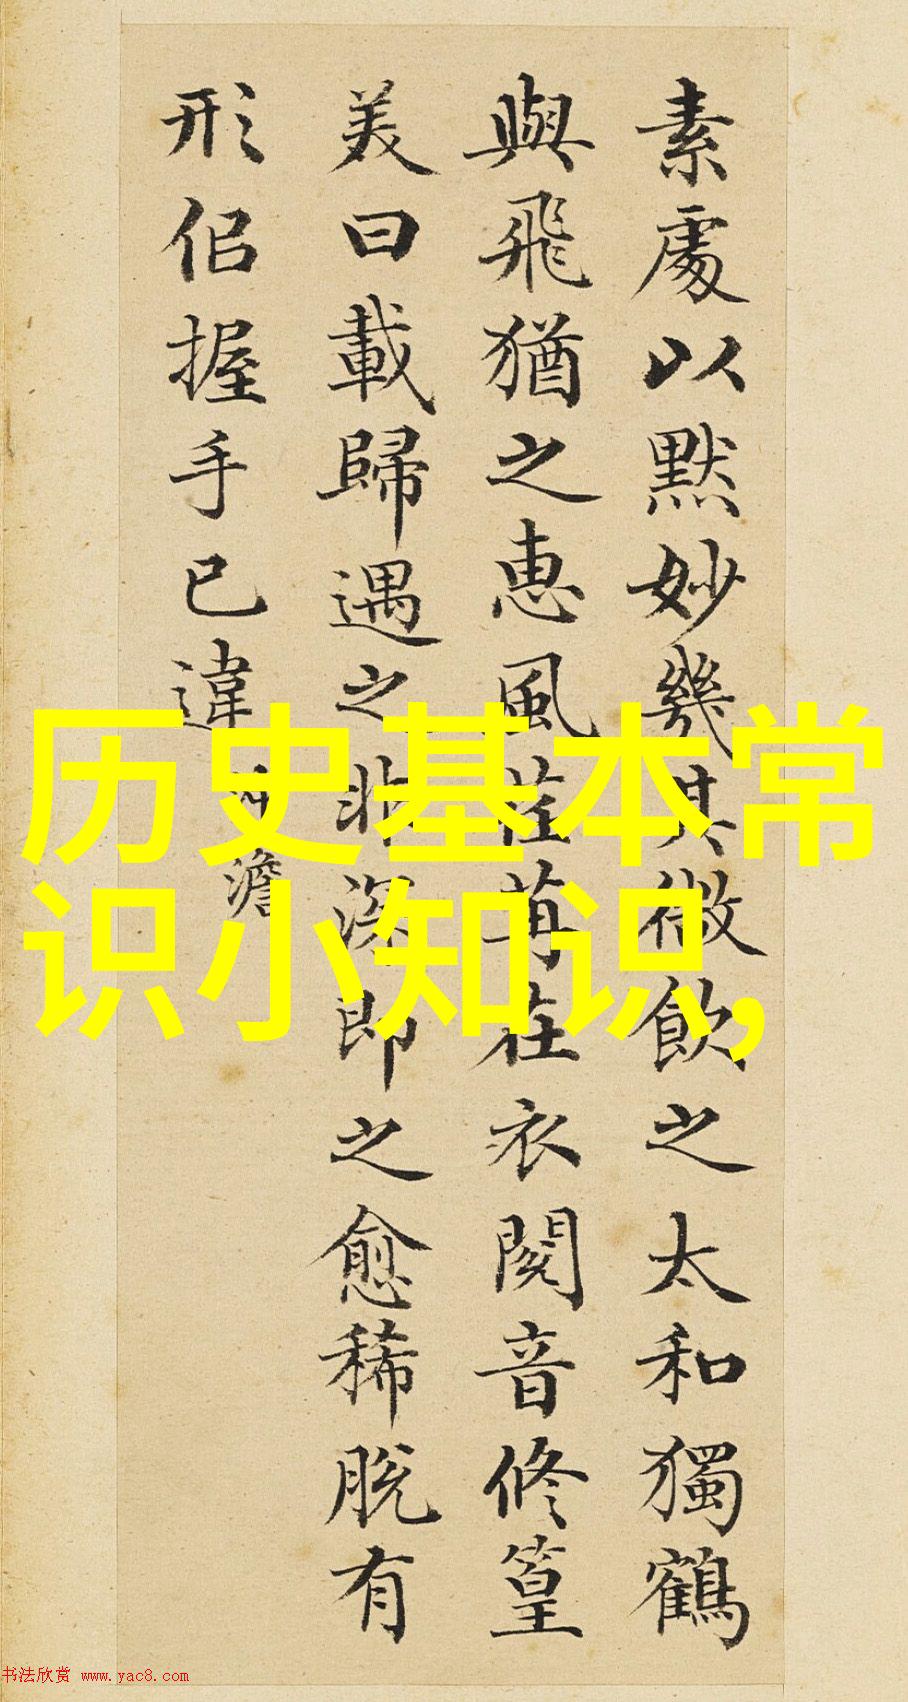 素處以默妙幾其微飲之太和獨鶴
與飛猶之惠風荏苒在衣閱音修篁
美曰載歸遇之非深即之愈稀脫有
形侣握手已違 冲澹
历史基本常
识小知识,
书法欣赏 www.yac8.com